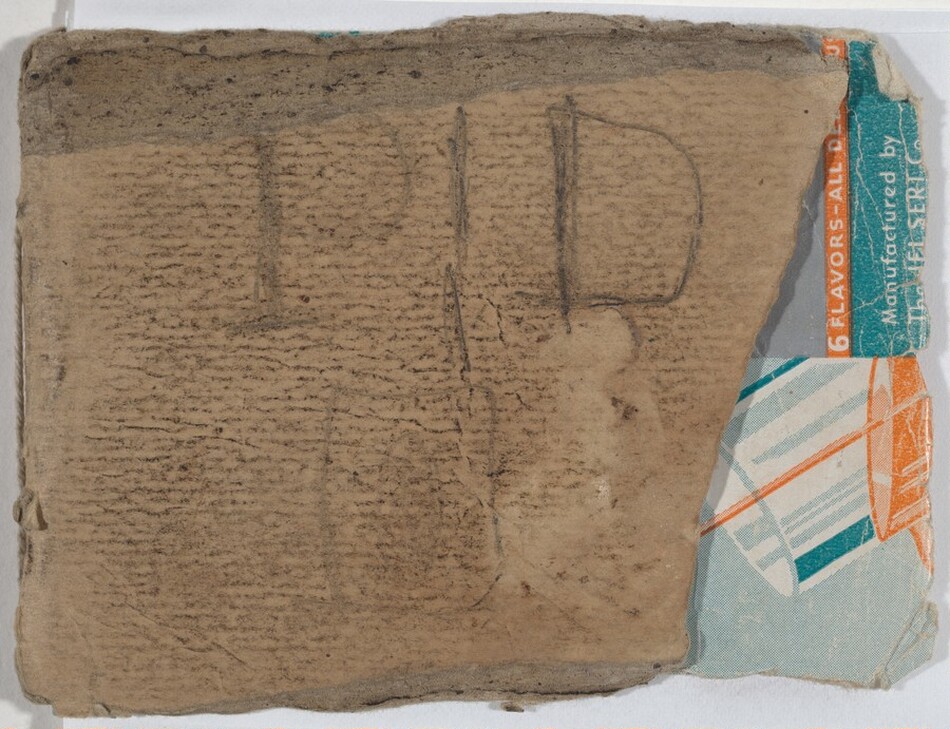 PID
6 FLAVORS-ALL
Manufactured by
The JEL SERT Co.